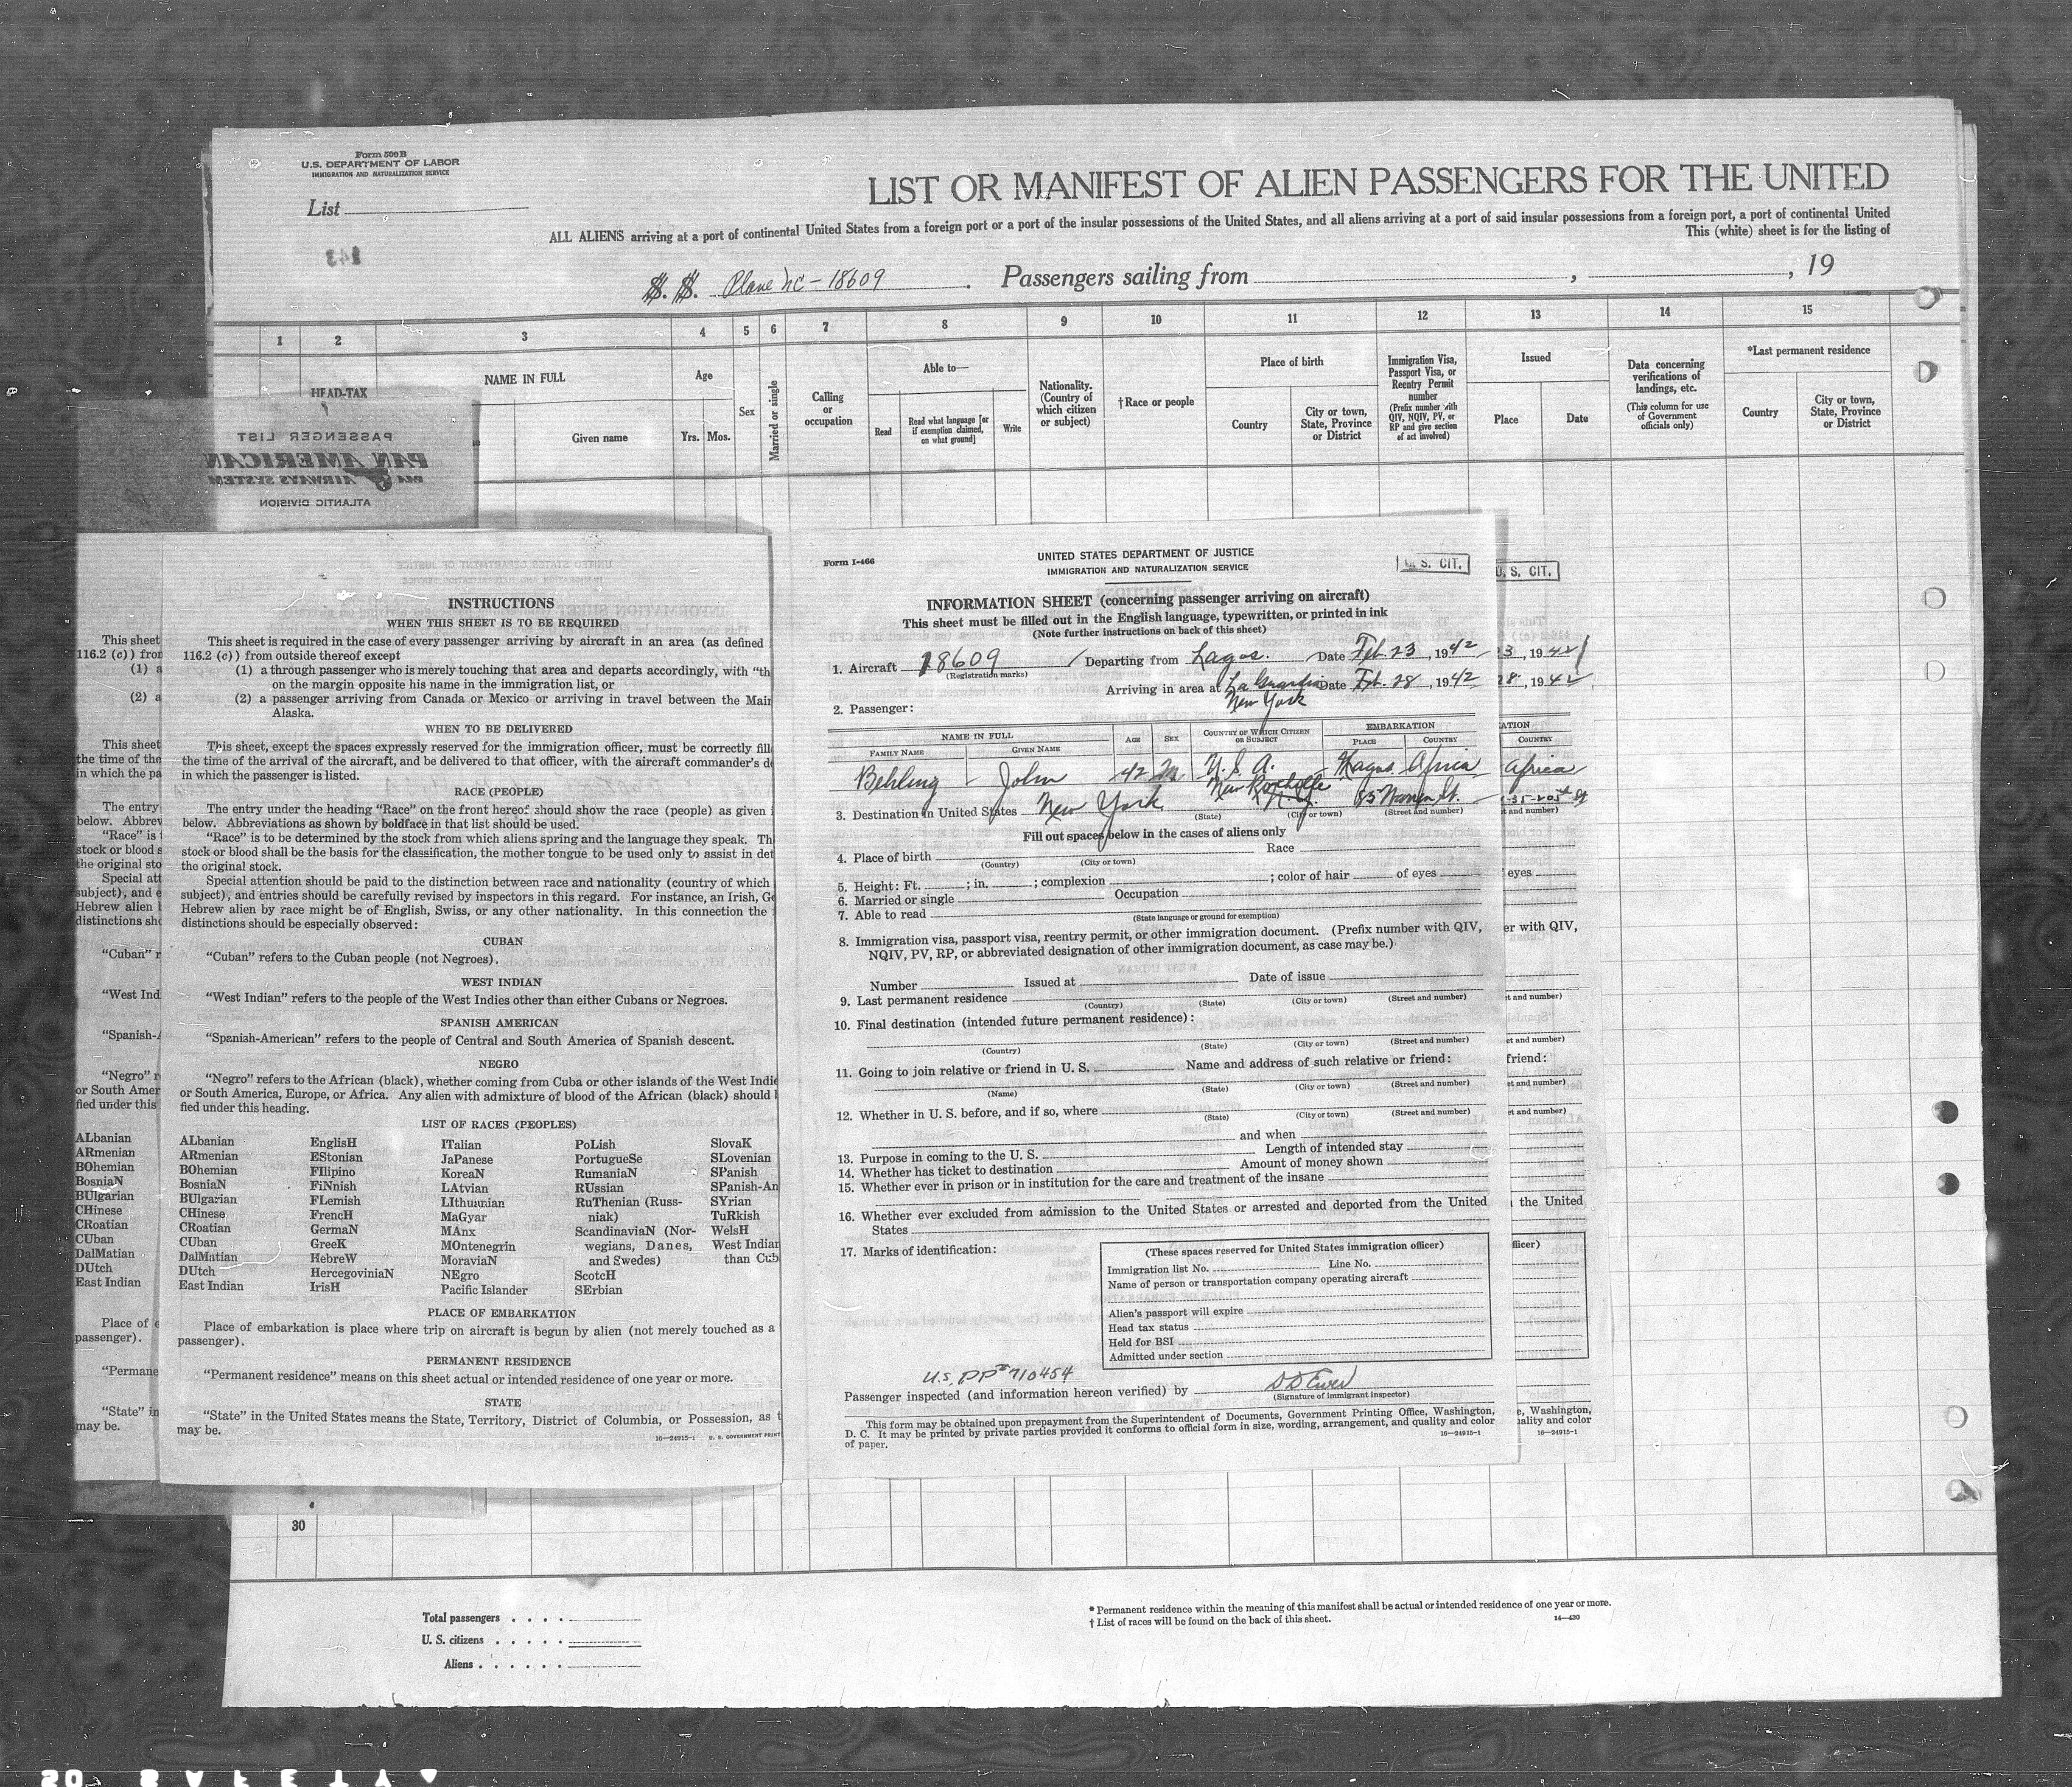 Form 500B
U.S. DEPARTMENT OF LABOR
IMMIGRATION AND NATURALIZATION SERVICE
List
LIST OR MANIFEST OF ALIEN PASSENGERS FOR THE UNITED
ALL ALIENS arriving at a port of continental United States from a foreign port or a port of the insular possessions of the United States, and all aliens arriving at a port of said insular possessions from a foreign port, a port of continental United
This (white) sheet is for the listing of
143
S. S. Plane NC-18609. Passengers sailing from , , 19
1 2 3 4 5 6 7 8 9 10 11 12 13 14 15
HEAD-TAX
NAME IN FULL
Given name
Age
Yrs. Mos.
Sex
Married or single
Calling or occupation
Able to—
Read
Read what language [or if exemption claimed, on what ground]
Write
Nationality. (Country of which citizen or subject)
†Race or people
Place of birth
Country
City or town, State, Province or District
Immigration Visa, Passport Visa, or Reentry Permit number
(Prefix number with QIV, NQIV, PV, or RP and give section of act involved)
Issued
Place
Date
Data concerning verifications of landings, etc.
(This column for use of Government officials only)
*Last permanent residence
Country
City or town, State, Province or District
PASSENGER LIST
PAN AMERICAN
PAA AIRWAYS SYSTEM
ATLANTIC DIVISION
This sheet
116.2 (c)) from
(1) a
(2) a
This sheet
the time of the
in which the pa
The entry
below. Abbrev
"Race" is t
stock or blood s
the original sto
Special att
subject), and e
Hebrew alien
distinctions sho
"Cuban" r
"West Ind
"Spanish-A
"Negro" r
or South Amer
fied under this
ALbanian
ARmenian
BOhemian
BosniaN
BUlgarian
CHinese
CRoatian
CUban
DalMatian
DUtch
East Indian
Place of e
passenger).
"Permane
"State" in
may be.
INSTRUCTIONS
WHEN THIS SHEET IS TO BE REQUIRED
This sheet is required in the case of every passenger arriving by aircraft in an area (as defined
116.2 (c)) from outside thereof except
(1) a through passenger who is merely touching that area and departs accordingly, with "th
on the margin opposite his name in the immigration list, or
(2) a passenger arriving from Canada or Mexico or arriving in travel between the Mai
Alaska.
WHEN TO BE DELIVERED
This sheet, except the spaces expressly reserved for the immigration officer, must be correctly fill
the time of the arrival of the aircraft, and be delivered to that officer, with the aircraft commander's d
in which the passenger is listed.
RACE (PEOPLE)
The entry under the heading "Race" on the front hereof should show the race (people) as given
below. Abbreviations as shown by boldface in that list should be used.
"Race" is to be determined by the stock from which aliens spring and the language they speak. Th
stock or blood shall be the basis for the classification, the mother tongue to be used only to assist in det
the original stock.
Special attention should be paid to the distinction between race and nationality (country of which
subject), and entries should be carefully revised by inspectors in this regard. For instance, an Irish, Ge
Hebrew alien by race might be of English, Swiss, or any other nationality. In this connection the
distinctions should be especially observed:
CUBAN
"Cuban" refers to the Cuban people (not Negroes).
WEST INDIAN
"West Indian" refers to the people of the West Indies other than either Cubans or Negroes.
SPANISH AMERICAN
"Spanish-American" refers to the people of Central and South America of Spanish descent.
NEGRO
"Negro" refers to the African (black), whether coming from Cuba or other islands of the West Indie
or South America, Europe, or Africa. Any alien with admixture of blood of the African (black) should
fied under this heading.
LIST OF RACES (PEOPLES)
ALbanian EnglisH ITalian PoLish SlovaK
ARmenian EStonian JaPanese PortugueSe SLovenian
BOhemian FIlipino KoreaN RumaniaN SPanish
BosniaN FiNnish LAtvian RUssian SPanish-An
BUlgarian FLemish LIthuanian RuThenian (Russ- SYrian
CHinese FrencH MaGyar niak) TuRkish
CRoatian GermaN MAnx ScandinaviaN (Nor- WelsH
CUban GreeK MOntenegrin wegians, Danes, West Indian
DalMatian HebreW MoraviaN and Swedes) than Cub
DUtch HercegoviniaN NEgro ScotcH
East Indian IrisH Pacific Islander SErbian
PLACE OF EMBARKATION
Place of embarkation is place where trip on aircraft is begun by alien (not merely touched as a
passenger).
PERMANENT RESIDENCE
"Permanent residence" means on this sheet actual or intended residence of one year or more.
STATE
"State" in the United States means the State, Territory, District of Columbia, or Possession, as t
may be.
16—24915-1 U. S. GOVERNMENT PRINT
Form I-466
UNITED STATES DEPARTMENT OF JUSTICE
IMMIGRATION AND NATURALIZATION SERVICE
U. S. CIT.
U. S. CIT.
INFORMATION SHEET (concerning passenger arriving on aircraft)
This sheet must be filled out in the English language, typewritten, or printed in ink
(Note further instructions on back of this sheet)
1. Aircraft 18609 Departing from Lagos. Date Feb 23, 1942
(Registration marks)
Arriving in area at La Guardia Date Feb. 28, 1942
New York
2. Passenger:
NAME IN FULL AGE SEX COUNTRY OF WHICH CITIZEN OR SUBJECT EMBARKATION
FAMILY NAME GIVEN NAME PLACE COUNTRY
Behling John 42 M U. S. A. Lagos Africa
3. Destination in United States New York New Rochelle N.Y. 85 Warren St.
(State) (City or town) (Street and number)
Fill out spaces below in the cases of aliens only
4. Place of birth Race
(Country) (City or town)
5. Height: Ft. ; in. ; complexion ; color of hair of eyes
6. Married or single Occupation
7. Able to read
(State language or ground for exemption)
8. Immigration visa, passport visa, reentry permit, or other immigration document. (Prefix number with QIV,
NQIV, PV, RP, or abbreviated designation of other immigration document, as case may be.)
Number Issued at Date of issue
9. Last permanent residence
(Country) (State) (City or town) (Street and number)
10. Final destination (intended future permanent residence):
(Country) (State) (City or town) (Street and number)
11. Going to join relative or friend in U. S. Name and address of such relative or friend:
(Name) (State) (City or town) (Street and number)
12. Whether in U. S. before, and if so, where
(State) (City or town) (Street and number)
and when
13. Purpose in coming to the U. S. Length of intended stay
14. Whether has ticket to destination Amount of money shown
15. Whether ever in prison or in institution for the care and treatment of the insane
16. Whether ever excluded from admission to the United States or arrested and deported from the United
States
17. Marks of identification:
(These spaces reserved for United States immigration officer)
Immigration list No. Line No.
Name of person or transportation company operating aircraft
Alien's passport will expire
Head tax status
Held for BSI
Admitted under section
U.S. PP# 710454
Passenger inspected (and information hereon verified) by
(Signature of immigrant inspector)
This form may be obtained upon prepayment from the Superintendent of Documents, Government Printing Office, Washington,
D. C. It may be printed by private parties provided it conforms to official form in size, wording, arrangement, and quality and color
of paper.
16—24915-1
23, 1942
28, 1942
ATION
COUNTRY
Africa
t and number)
eyes
er with QIV,
t and number)
t and number)
friend:
t and number)
t and number)
the United
fficer)
e, Washington,
ality and color
16—24915-1
30
Total passengers
U. S. citizens
Aliens
* Permanent residence within the meaning of this manifest shall be actual or intended residence of one year or more.
† List of races will be found on the back of this sheet.
14—430